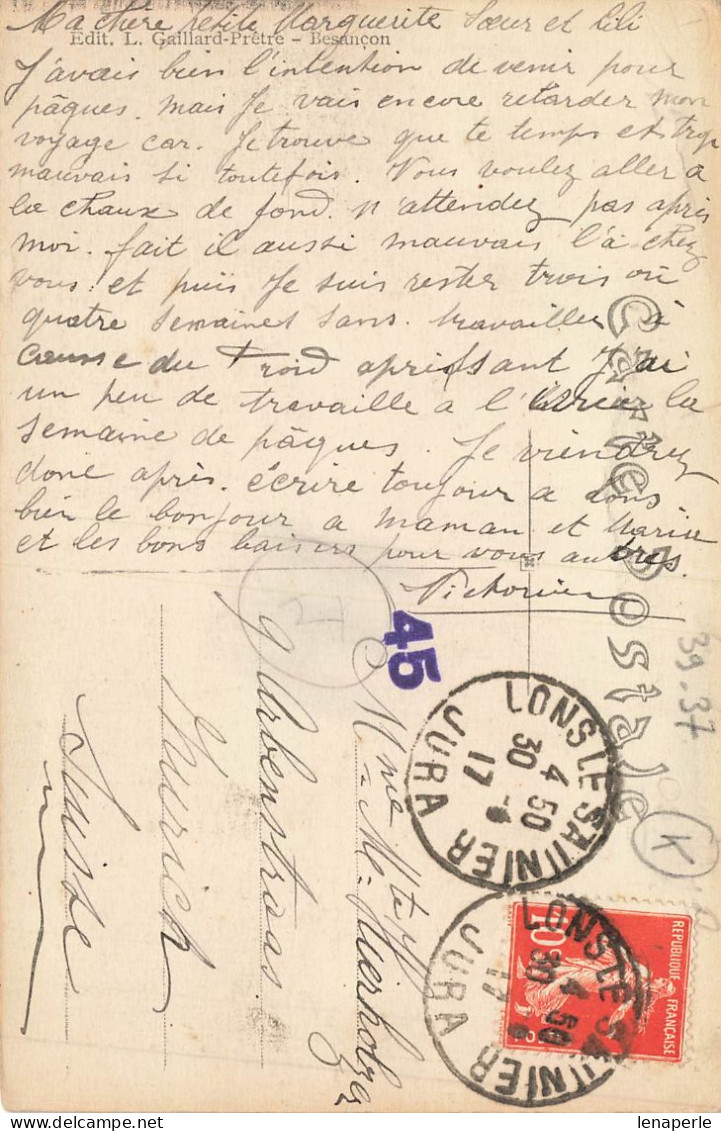 Ma chère petite Marguerite Sœur et Lili
Edit. L. Gaillard-Prêtre – Besançon
J'avais bien l'intention de venir pour
pâques. mais Je vais encore retarder mon
voyage car. Je trouve que te temps et trop
mauvais Si toutefois. Vous voulez aller a
la chaux de fond. n'attendez pas après
moi. fait il aussi mauvais l'à chez
vous. et puis Je suis rester trois où
quatre semaines sans. travailler à
cause du Froid apréssant J'ai
un peu de travaille a l' la
semaine de pâques. Je viendrez
donc après. écrire toujour a Lons
bien le bonjour a maman et Marise
et les bons baisers pour vous autres.
Victorine
Carte Postale
45
39.37
K
27
Mme
9 Arbenstraas
Zurich
Suisse
LONS LE SAUNIER
4 50
30 -
17
JURA
REPUBLIQUE FRANÇAISE
10c
LONS LE SAUNIER
4 50
30
17
JURA
lenaperle